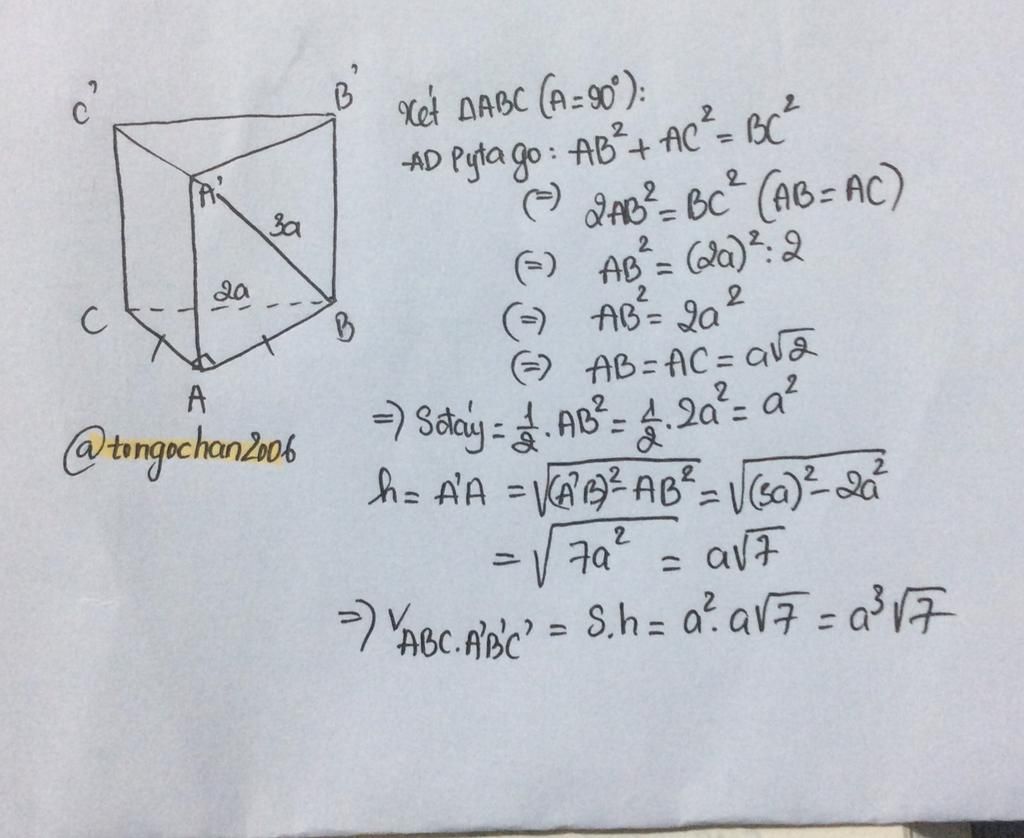 C'
B'
A'
3a
2a
C
B
A
@tongochan2006
Xét ΔABC (A=90°):
AD Pytago: AB² + AC² = BC²
(=) 2AB² = BC² (AB = AC)
(=) AB² = (2a)² : 2
(=) AB² = 2a²
(=) AB = AC = a√2
=) Sđáy = 1/2 . AB² = 1/2 . 2a² = a²
h = A'A = √(A'B)² - AB² = √(3a)² - 2a²
= √7a² = a√7
=) V ABC.A'B'C' = S.h = a² . a√7 = a³√7